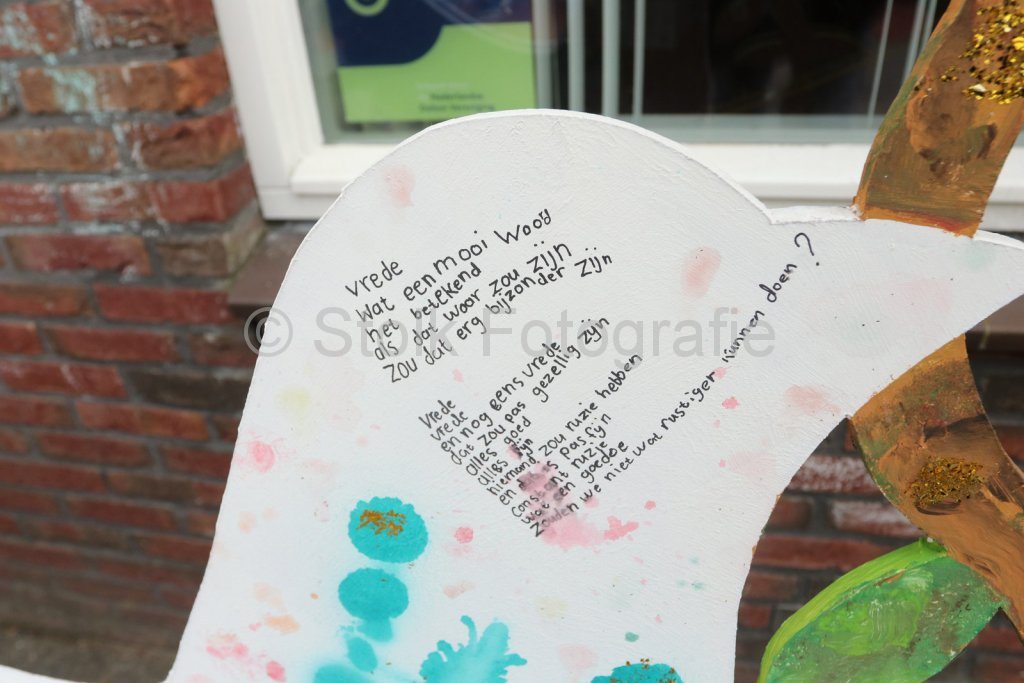 Nederlandse
vrede
wat een mooi woord
het betekend
als dat waar zou zijn
zou dat erg bijzonder zijn
vrede
vrede
en nog eens vrede
dat zou pas gezellig zijn
alles goed
alles fijn
niemand zou ruzie hebben
en dat is pas fijn
constant ruzie
wat een goedee
zouden we niet wat rustiger kunnen doen?
© StolK Fotografie